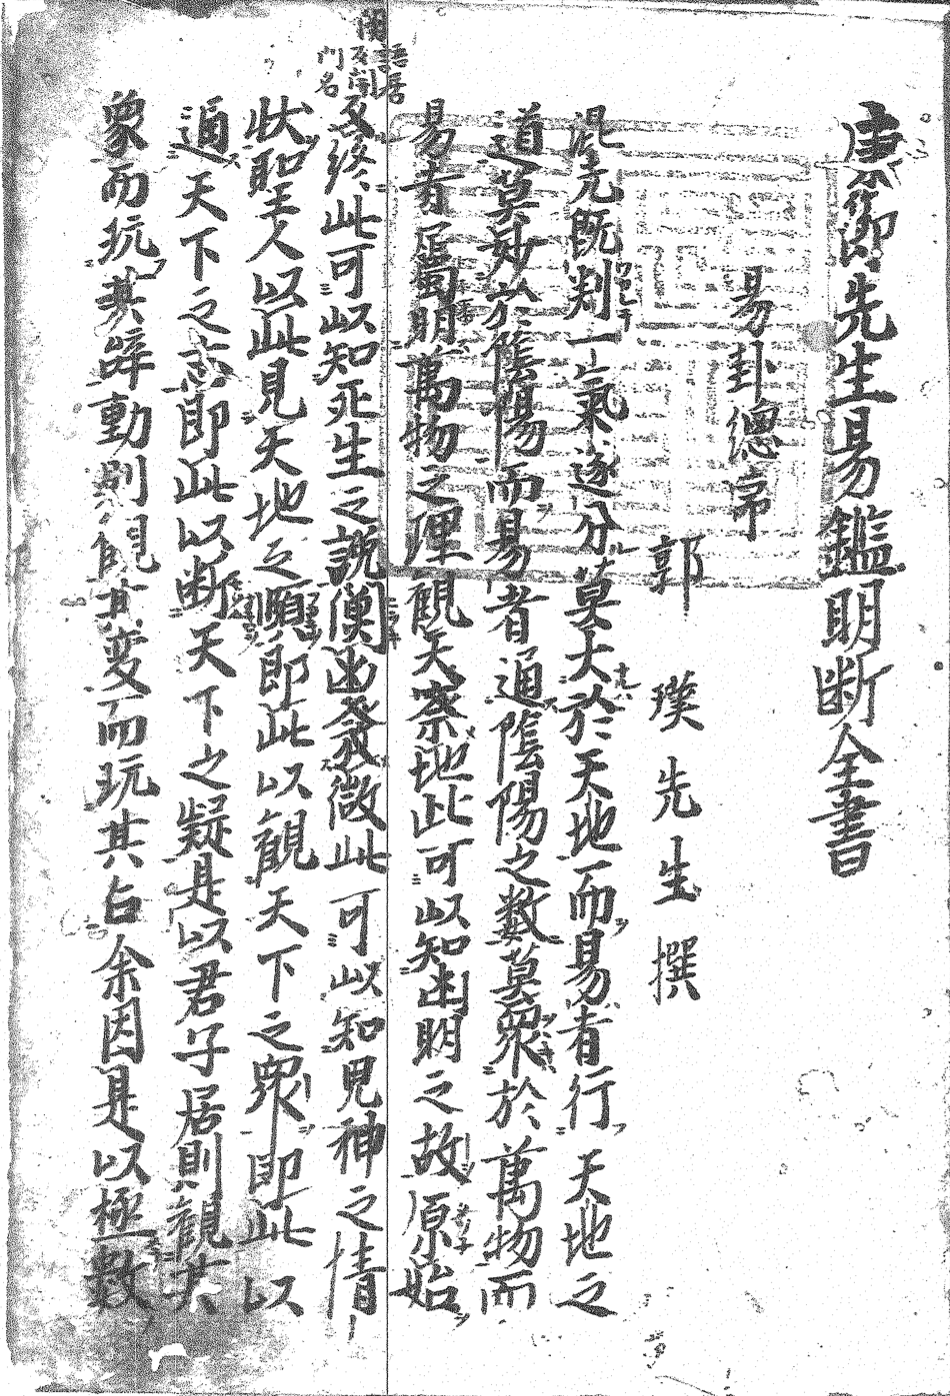 康節先生易鑑明断全書
易卦總序
郭璞先生撰
混元既判一氣遂分莫大於天地而易者行天地之
道莫妙於陰陽而易者通陰陽之數莫衆於萬物而
易者屬明萬物之理観天察地此可以知幽明之故原始
反終此可以知死生之説僕幽發微此可以知鬼神之情
状聖人以此見天地之賾即此以観天下之衆即此以
通天下之志即此以断天下之疑是以君子居則観其
象而玩其辞動則観其変而玩其占余因是以極數